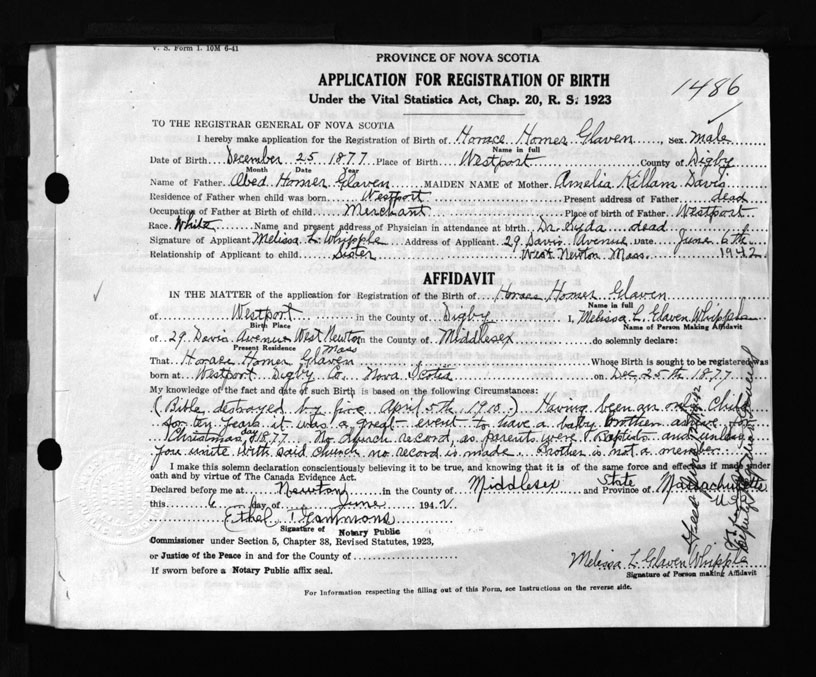 V. S. Form 1. 10M 6-41
PROVINCE OF NOVA SCOTIA
APPLICATION FOR REGISTRATION OF BIRTH
1486
Under the Vital Statistics Act, Chap. 20, R. S. 1923
TO THE REGISTRAR GENERAL OF NOVA SCOTIA
I hereby make application for the Registration of Birth of Horace Homer Glaven, Sex Male
Name in full
Date of Birth December 25 1877 Place of Birth Westport County of Digby
Month Date Year
Name of Father Obed Homer Glaven MAIDEN NAME of Mother Amelia Killam Davis
Residence of Father when child was born Westport Present address of Father dead
Occupation of Father at Birth of child Merchant Place of birth of Father Westport
Race White Name and present address of Physician in attendance at birth Dr Syda dead
Signature of Applicant Melissa L. Whipple Address of Applicant 29 Davis Avenue Date June 6th
Relationship of Applicant to child Sister West Newton Mass. 1942
AFFIDAVIT
IN THE MATTER of the application for Registration of the Birth of Horace Homer Glaven
Name in full
of Westport in the County of Digby I, Melissa L. Glaven Whipple
Birth Place Name of Person Making Affidavit
of 29 Davis Avenue West Newton in the County of Middlesex do solemnly declare:
Present Residence Mass
That Horace Homer Glaven Whose Birth is sought to be registered was
born at Westport Digby Co. Nova Scotia on Dec 25th 1877
My knowledge of the fact and date of such Birth is based on the following Circumstances:
(Bible destroyed by fire April 5th 1910.) Having been an only Child
for ten years it was a great event to have a baby brother arrive for
Christmas day 1877. No church record, as parents were Baptists and unless
you unite with said church no record is made. Brother is not a member.
I make this solemn declaration conscientiously believing it to be true, and knowing that it is of the same force and effect as if made under
oath and by virtue of The Canada Evidence Act.
Declared before me at Newton in the County of Middlesex State and Province of Massachusetts
this 6 day of June 1942. U.S.A
Ethel T. Gammons
Signature of Notary Public
Commissioner under Section 5, Chapter 38, Revised Statutes, 1923,
or Justice of the Peace in and for the County of
If sworn before a Notary Public affix seal.
Melissa L. Glaven Whipple
Signature of Person making Affidavit
For Information respecting the filling out of this Form, see Instructions on the reverse side.